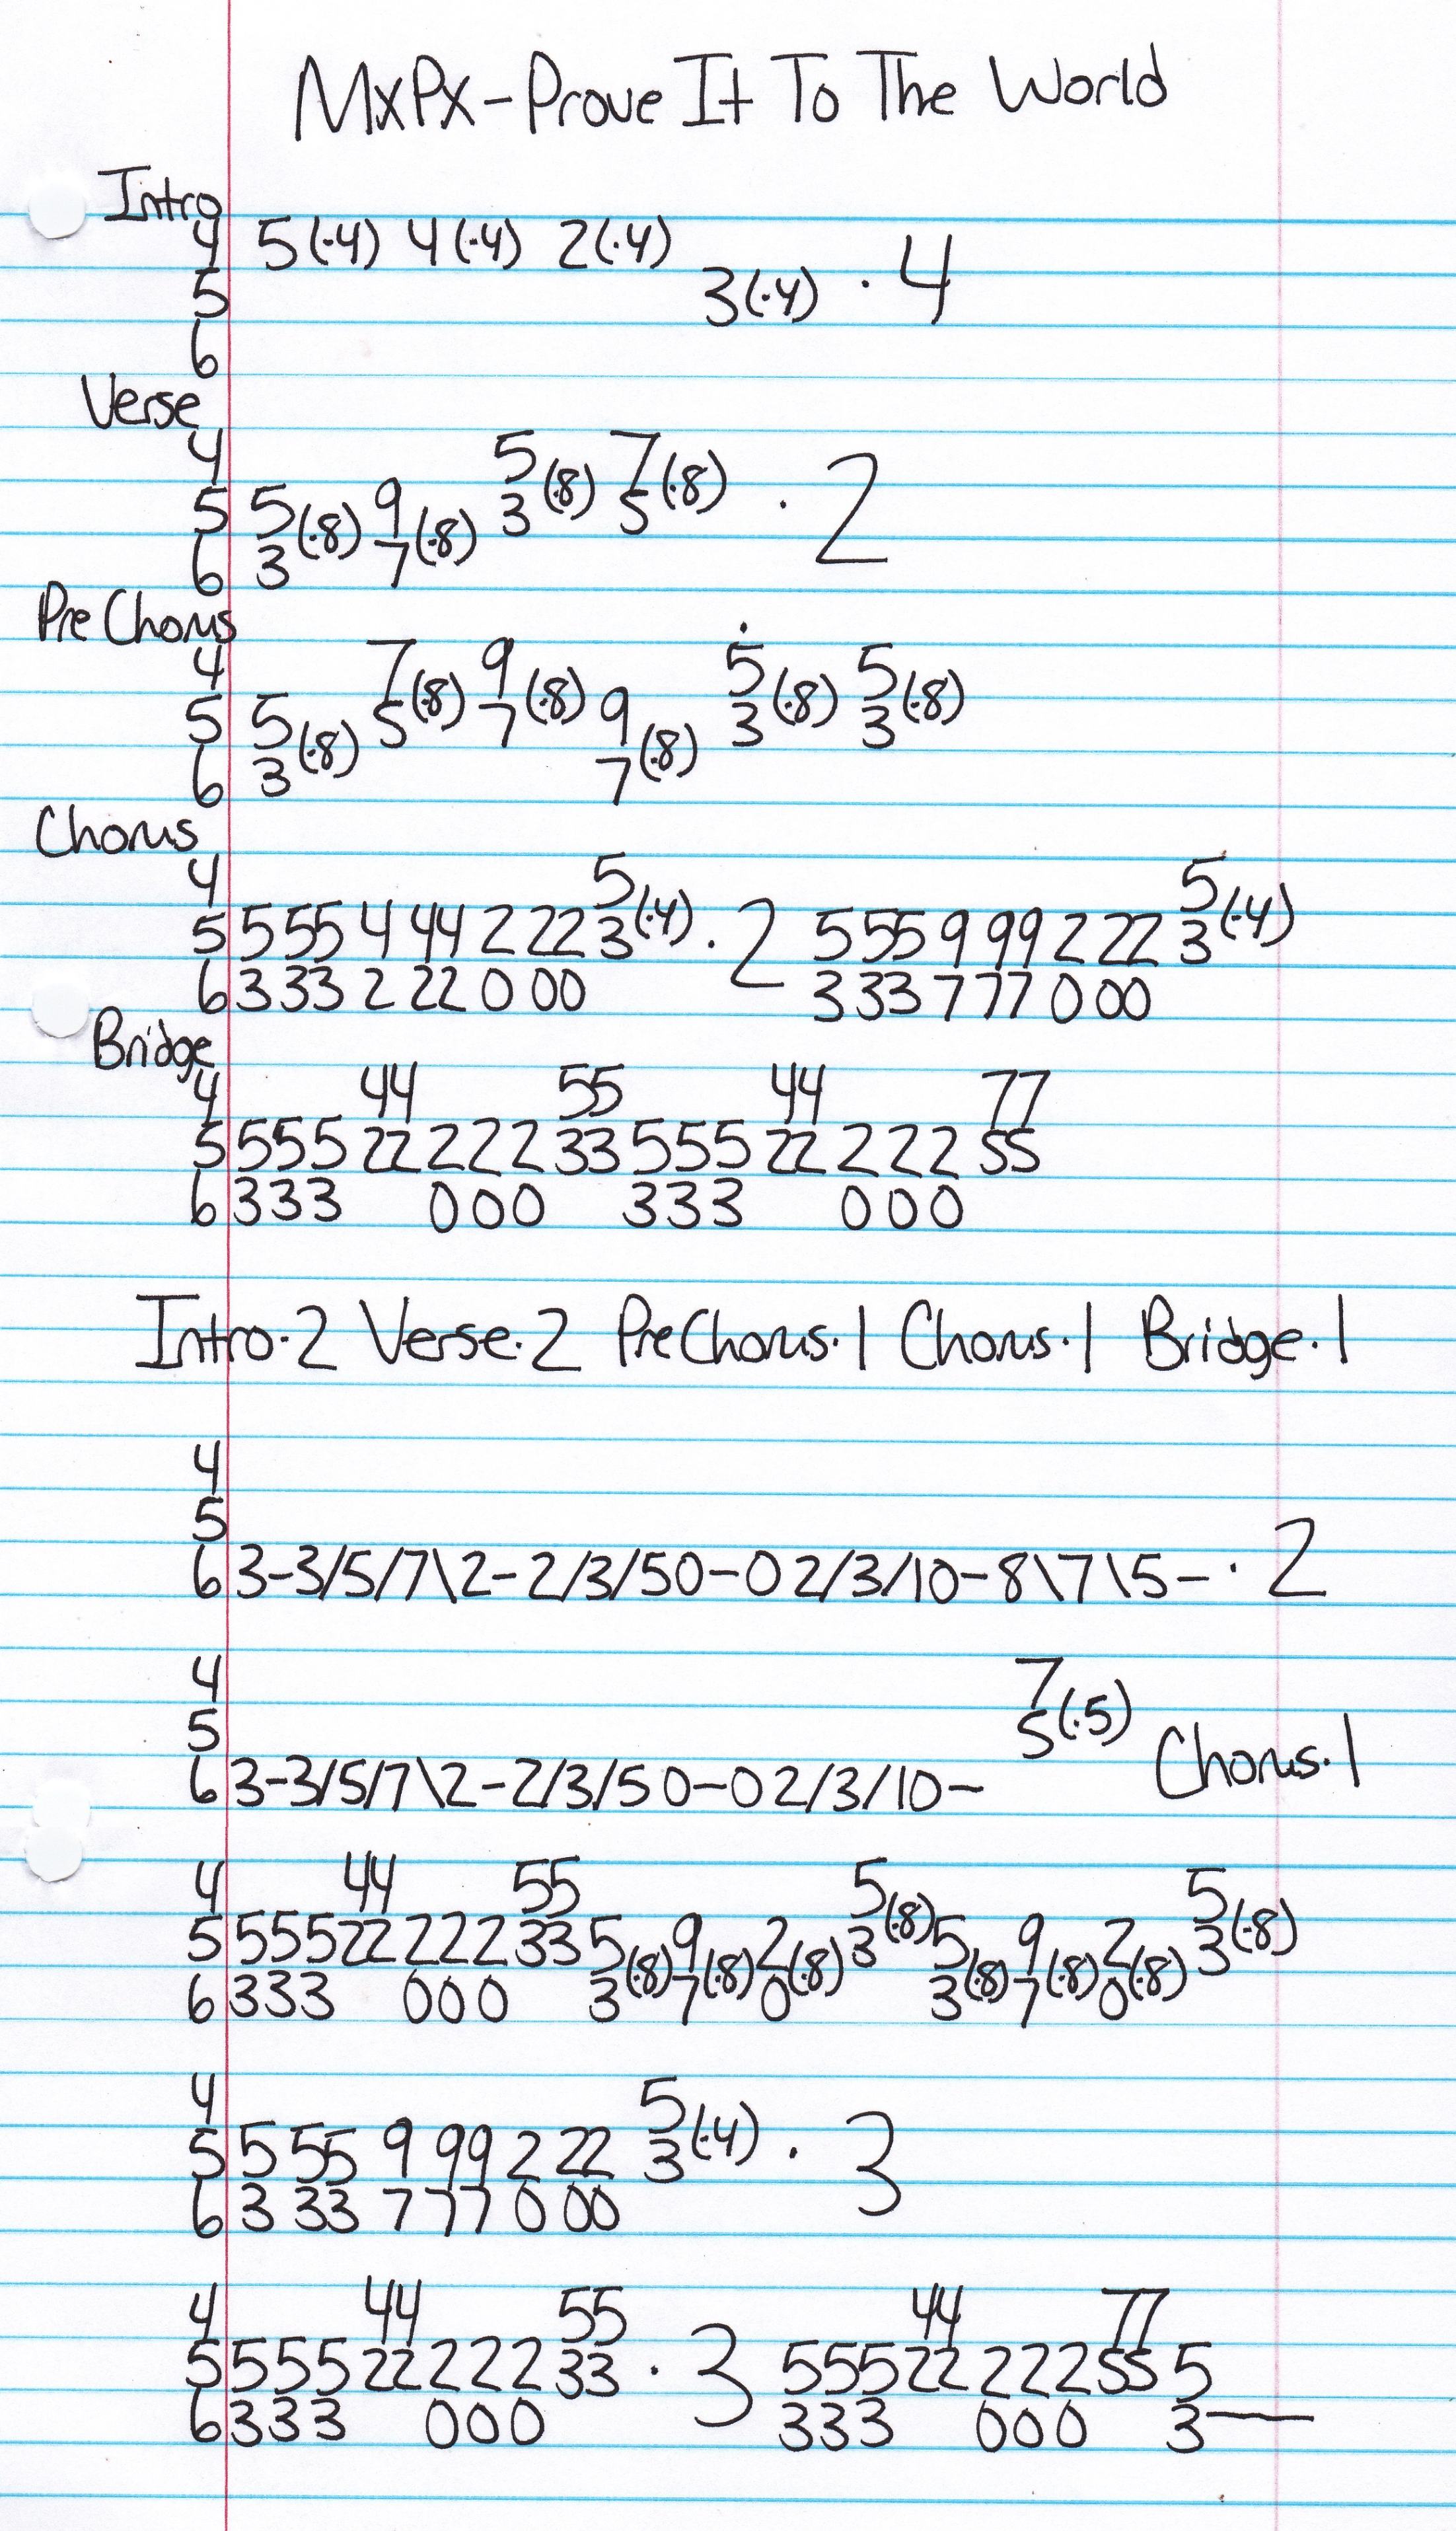 MxPx-Prove It To The World
Intro
4 5(·4) 4(·4) 2(·4)
5 3(·4) · 4
6
Verse
4 5 7
5 5(·8) 9(·8) 3(·8) 5(·8) · 2
6 3 7
Pre Chorus
4 7(·8) 9(·8) 5(·8) 5(·8)
5 5 5 7 9 3 3
6 3(·8) 7(·8)
Chorus
4 5 5
5 5 55 4 44 2 22 3(·4) · 2 5 55 9 99 2 22 3(·4)
6 3 33 2 22 0 00 3 33 7 77 0 00
Bridge
4 44 55 44 77
5 555 22 222 33 555 22 222 55
6 333 000 333 000
Intro·2 Verse·2 PreChorus·1 Chorus·1 Bridge·1
4
5
6 3-3/5/7\2-2/3/5 0-0 2/3/10-8\7\5- · 2
4 7
5 5(·5) Chorus·1
6 3-3/5/7\2-2/3/5 0-0 2/3/10-
4 44 55 5(·8) 5
5 555 22 222 33 5 9 2 3 5 9 2 3(·8)
6 333 000 3(·8) 7(·8) 0(·8) 3(·8) 7(·8) 0(·8)
4 5
5 5 55 9 99 2 22 3(·4) · 3
6 3 33 7 77 0 00
4 44 55 44 77
5 555 22 222 33 · 3 555 22 222 55 5
6 333 000 333 000 3—